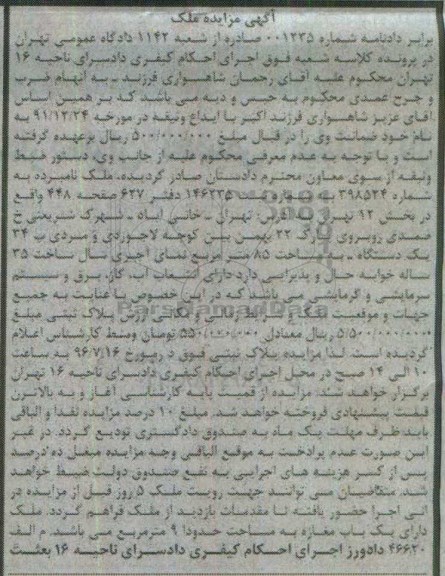 آگهی مزایده ملک
برابر دادنامه شماره ۰۰۱۲۳۵ صادره از شعبه ۱۱۴۲ دادگاه عمومی تهران
در پرونده کلاسه شعبه فوق اجرای احکام کیفری دادسرای ناحیه ۱۶
تهران محکوم علیه آقای رحمان شاهسواری فرزند ـ به اتهام ضرب
و جرح عمدی محکوم به حبس و دیه می باشد که بر همین اساس
آقای عزیز شاهسواری فرزند اکبر با ایداع وثیقه در مورخه ۹۱/۱۲/۲۴ به
نام خود ضمانت وی را در قبال مبلغ ۵۰۰/۰۰۰/۰۰۰ ریال برعهده گرفته
است و با توجه به عدم معرفی محکوم علیه از جانب وی، دستور ضبط
وثیقه از سوی معاون محترم دادستان صادر گردیده، ملک نامبرده به
شماره ۳۹۸۵۲۴ به شماره ثبت ۱۴۶۲۳۵ دفتر ۶۲۷ صفحه ۴۴۸ واقع
در بخش ۱۲ تهران به آدرس: تهران ـ خانی آباد ـ شهرک شریعتی خ
صمدی روبروی پارک ۲۲ بهمن بین کوچه لاجوردی و مردی پ ۳۴
یک دستگاه ـ به مساحت ۸۵ متر مربع نمای آجری سال ساخت ۳۵
ساله خوابه حال و پذیرایی دارد دارای انشعاب آب، گاز، برق و سیستم
سرمایشی و گرمایشی می باشد که در این خصوص با عنایت به جمیع
جهات و موقعیت مکانی ارزش پلاک ثبتی مبلغ
۵/۵۰۰/۰۰۰/۰۰۰ ریال معادل ۵۵۰/۰۰۰/۰۰۰ تومان وسط کارشناس اعلام
گردیده است. لذا مزایده پلاک ثبتی فوق در مورخ ۹۶/۷/۱۶ به ساعت
۱۰ الی ۱۴ صبح در محل اجرای احکام کیفری دادسرای ناحیه ۱۶ تهران
برگزار خواهد شد. مزایده از قیمت پایه کارشناسی آغاز و به بالاترین
قیمت پیشنهادی فروخته خواهد شد. مبلغ ۱۰ درصد مزایده نقدا و الباقی
باید ظرف مهلت یک ماه به صندوق دادگستری تودیع گردد. در غیر
این صورت عدم پرداخت به موقع الباقی وجه مزایده مبلغ ده درصد
پس از کسر هزینه های اجرایی به نفع صندوق دولت ضبط خواهد
شد. متقاضیان می توانند جهت رویت ملک ۵ روز قبل از مزایده در
این اجرا حضور یافته تا مقدمات بازدید از ملک فراهم گردد. ملک
دارای یک باب مغازه به مساحت حدودا ۹ مترمربع می باشد. م الف
۴۶۶۲۰ دادورز اجرای احکام کیفری دادسرای ناحیه ۱۶ بعثت